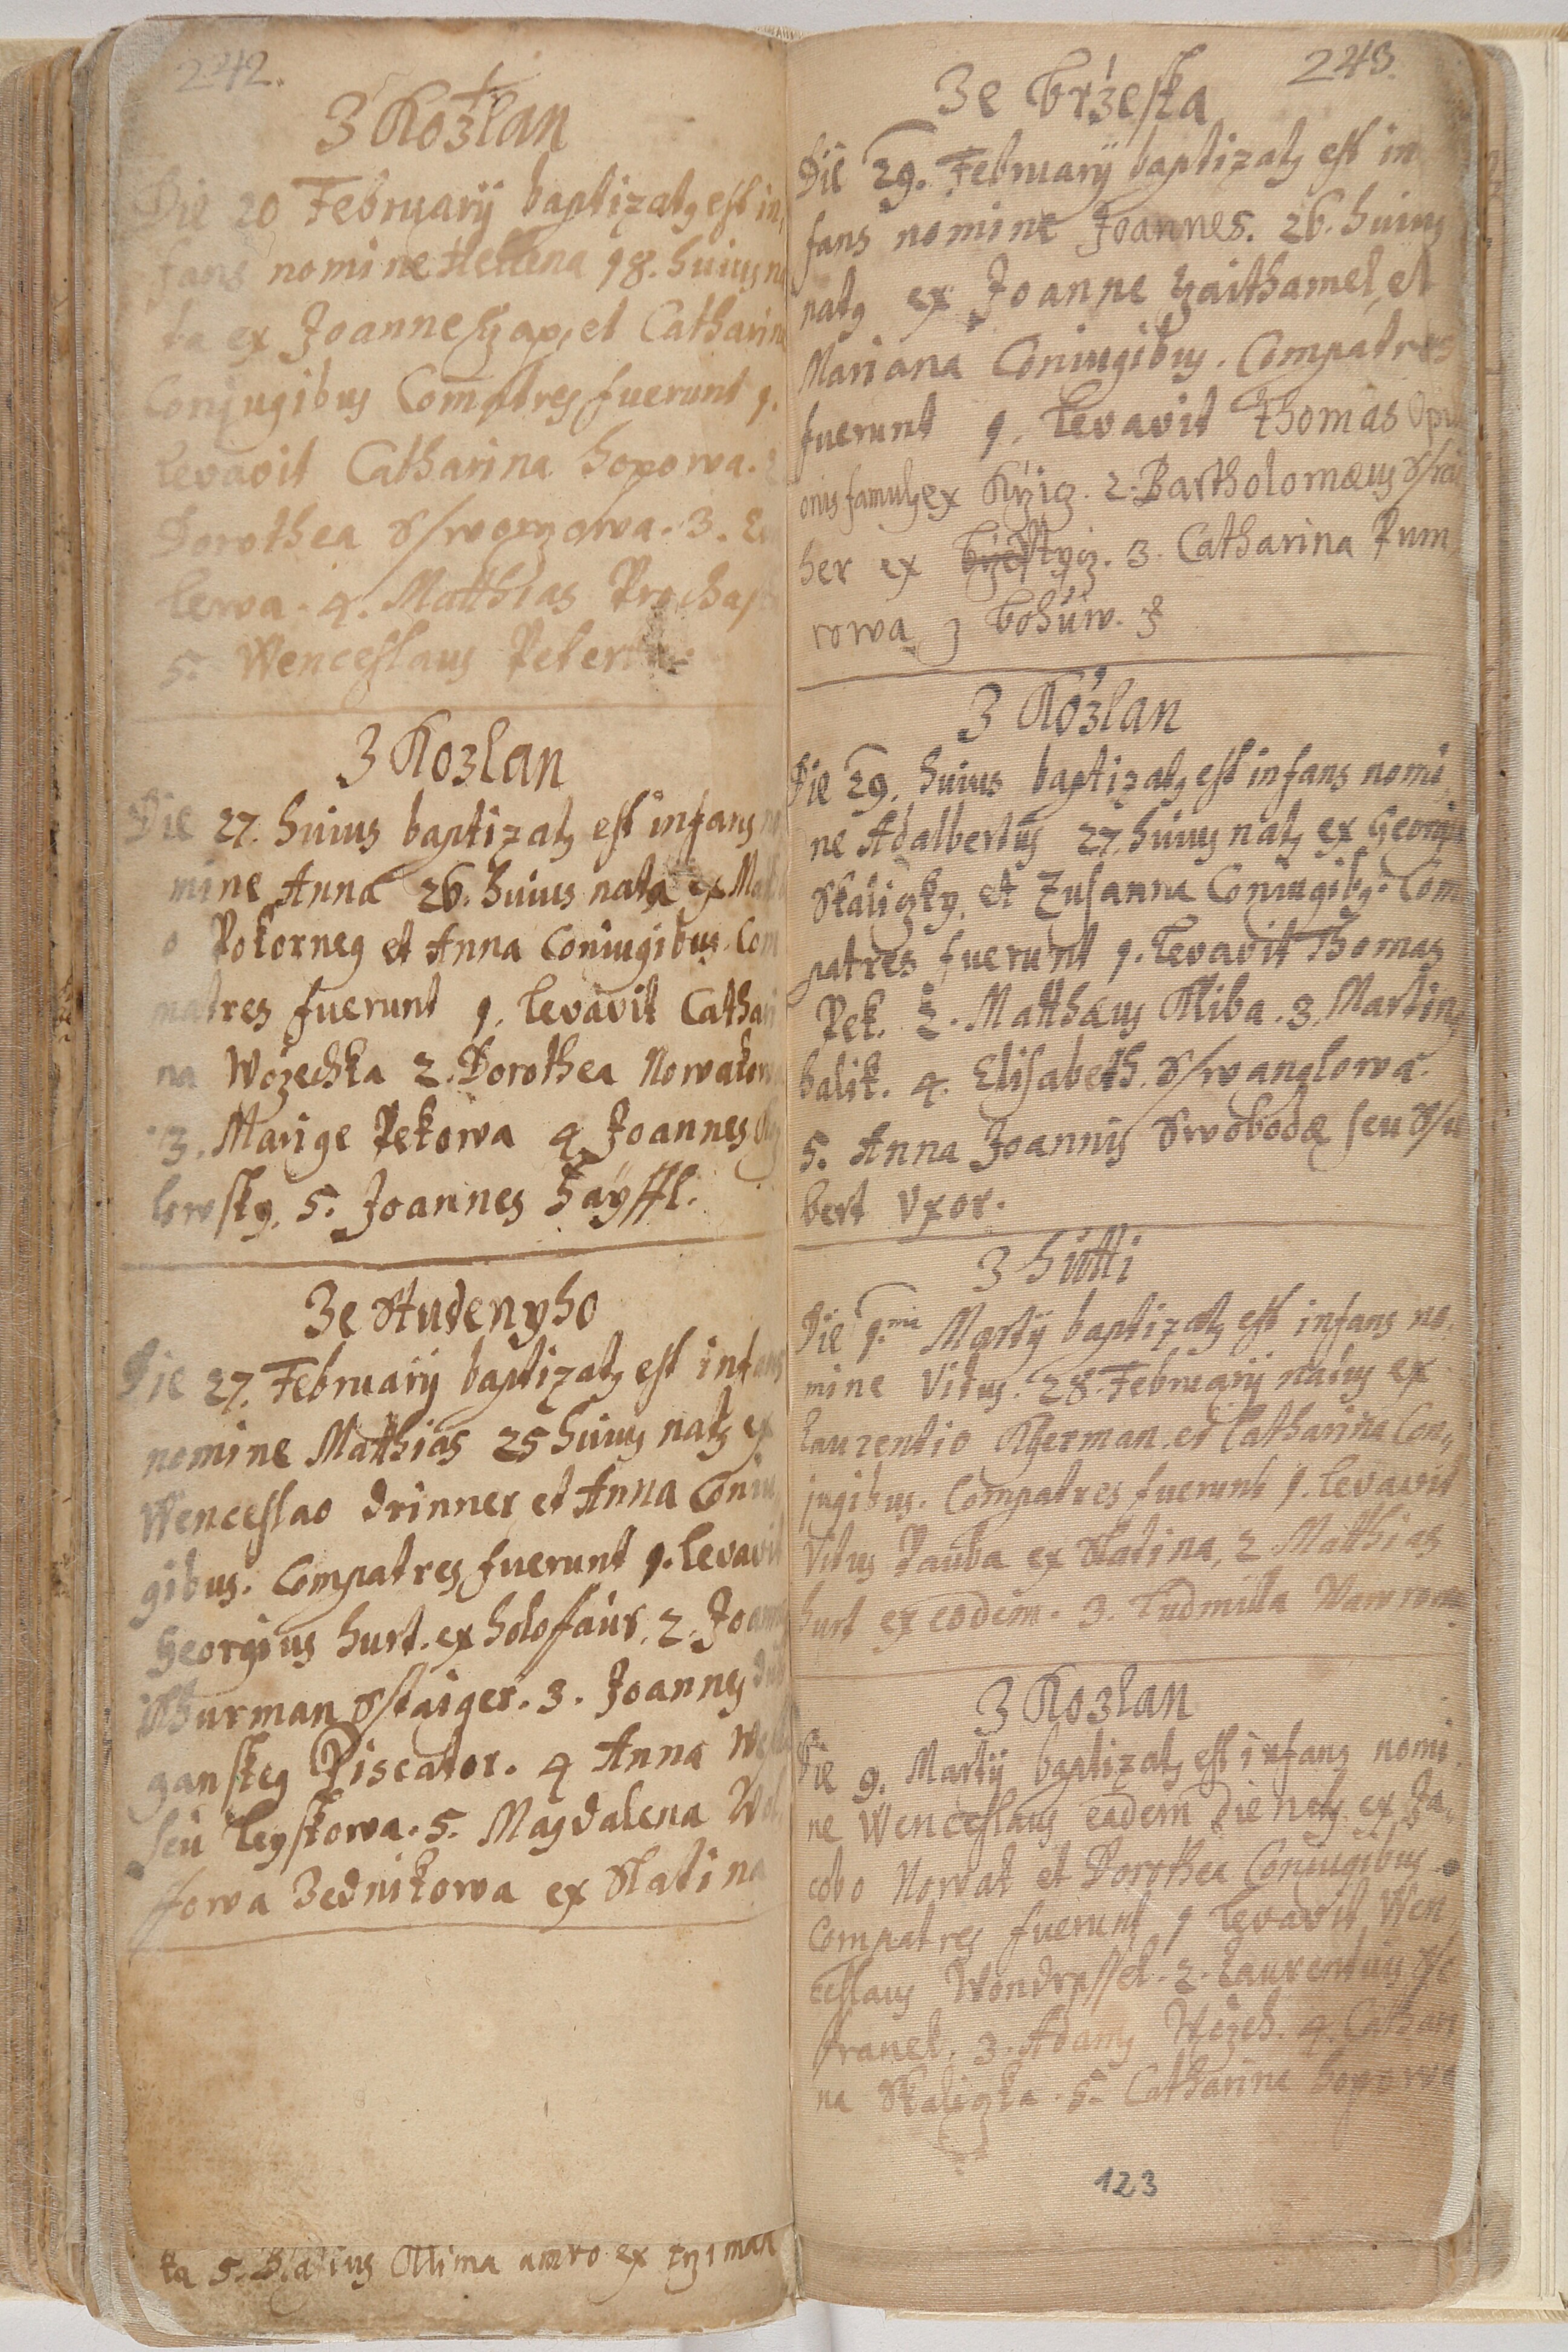 242.
3 Kozlan
Die 20 Februarÿ baptizatg est in,
fans nomine Hellena 18. huius na
ta ex Joanne Czap, et Catharina
Conjugibus Compatres fuerunt 1.
levavit Catharina hopowa. 2
Dorothea
lewa. 4. Matthias
5. Wenceslaus
3 Kozlan
Die 27. huius baptizatg est infans no
mine Anna 26. huius nata ex
o Pokorneg et Anna Coniugibus. Com
patres fuerunt 1. levavit Cathari
na Wozechka 2. Dorothea Nowakowa
3. Marige Pekowa 4 Joannes
lowsky. 5. Joannes hayffl.
3e Studenyho
Die 27. Februarÿ baptizatg est infans
nomine Matthias 25 huius natg ex
Wenceslao drinner et Anna Coniu
gibus. Compatres fuerunt 1. levavit
Georgius hurt. ex holossaus. 2. Joannes
Staiger. 3. Joannes
ganskeg Piscator. 4 Anna
seu leyskowa. 5. Magdalena
ffowa Zednikowa ex Slatina
ta 5. Blasius Klima
243.
3e Brzeska
Die 29. Februarÿ baptizatg est in
fans nomine Joannes. 26. huius
natg ex Joanne Zaithamel, et
Mariana Coniugibus. Compatres
fuerunt 1. levavit Thomas
onis famulg ex Krziz. 2. Bartholomæus
her ex 3. Catharina Rum
rowa z bohuw.
3 Kozlan
Die 29. huius baptizatg est infans nomi,
ne Adalbertus 27. huius natg ex Georgio
Skaliczky, et Zusanna Coniugibg. Com
patres fuerunt 1. levavit Thomas
Pek. 2. Matthæus Kliba. 3. Marting
balik. 4. Elisabeth Sswanglowa.
5. Anna Joannis Swobodæ seu
bert Uxor.
3 hutti
Die 1.ma Martÿ baptizatg est infans no,
mine Vitus. 28. Februarÿ natus ex
Laurentio Kherman et Catharina Con,,
jugibus. Compatres fuerunt 1. levavit
Vitus dauba ex Slatina, 2 Matthias
hurt ex eodem. 3. Ludmilla
3 Kozlan
Die 9. Martÿ baptizatg est infans nomi,
ne Wenceslaus eadem die natg ex Ja,
cobo Nowak et Dorothea Coniugibus.
Compatres fuerunt 1 levavit Wen
ceslaus 2. Laurentius
3. Adamg Wozech. 4. Cathari
na Skaliczka. 5. Catharina hopowa
123